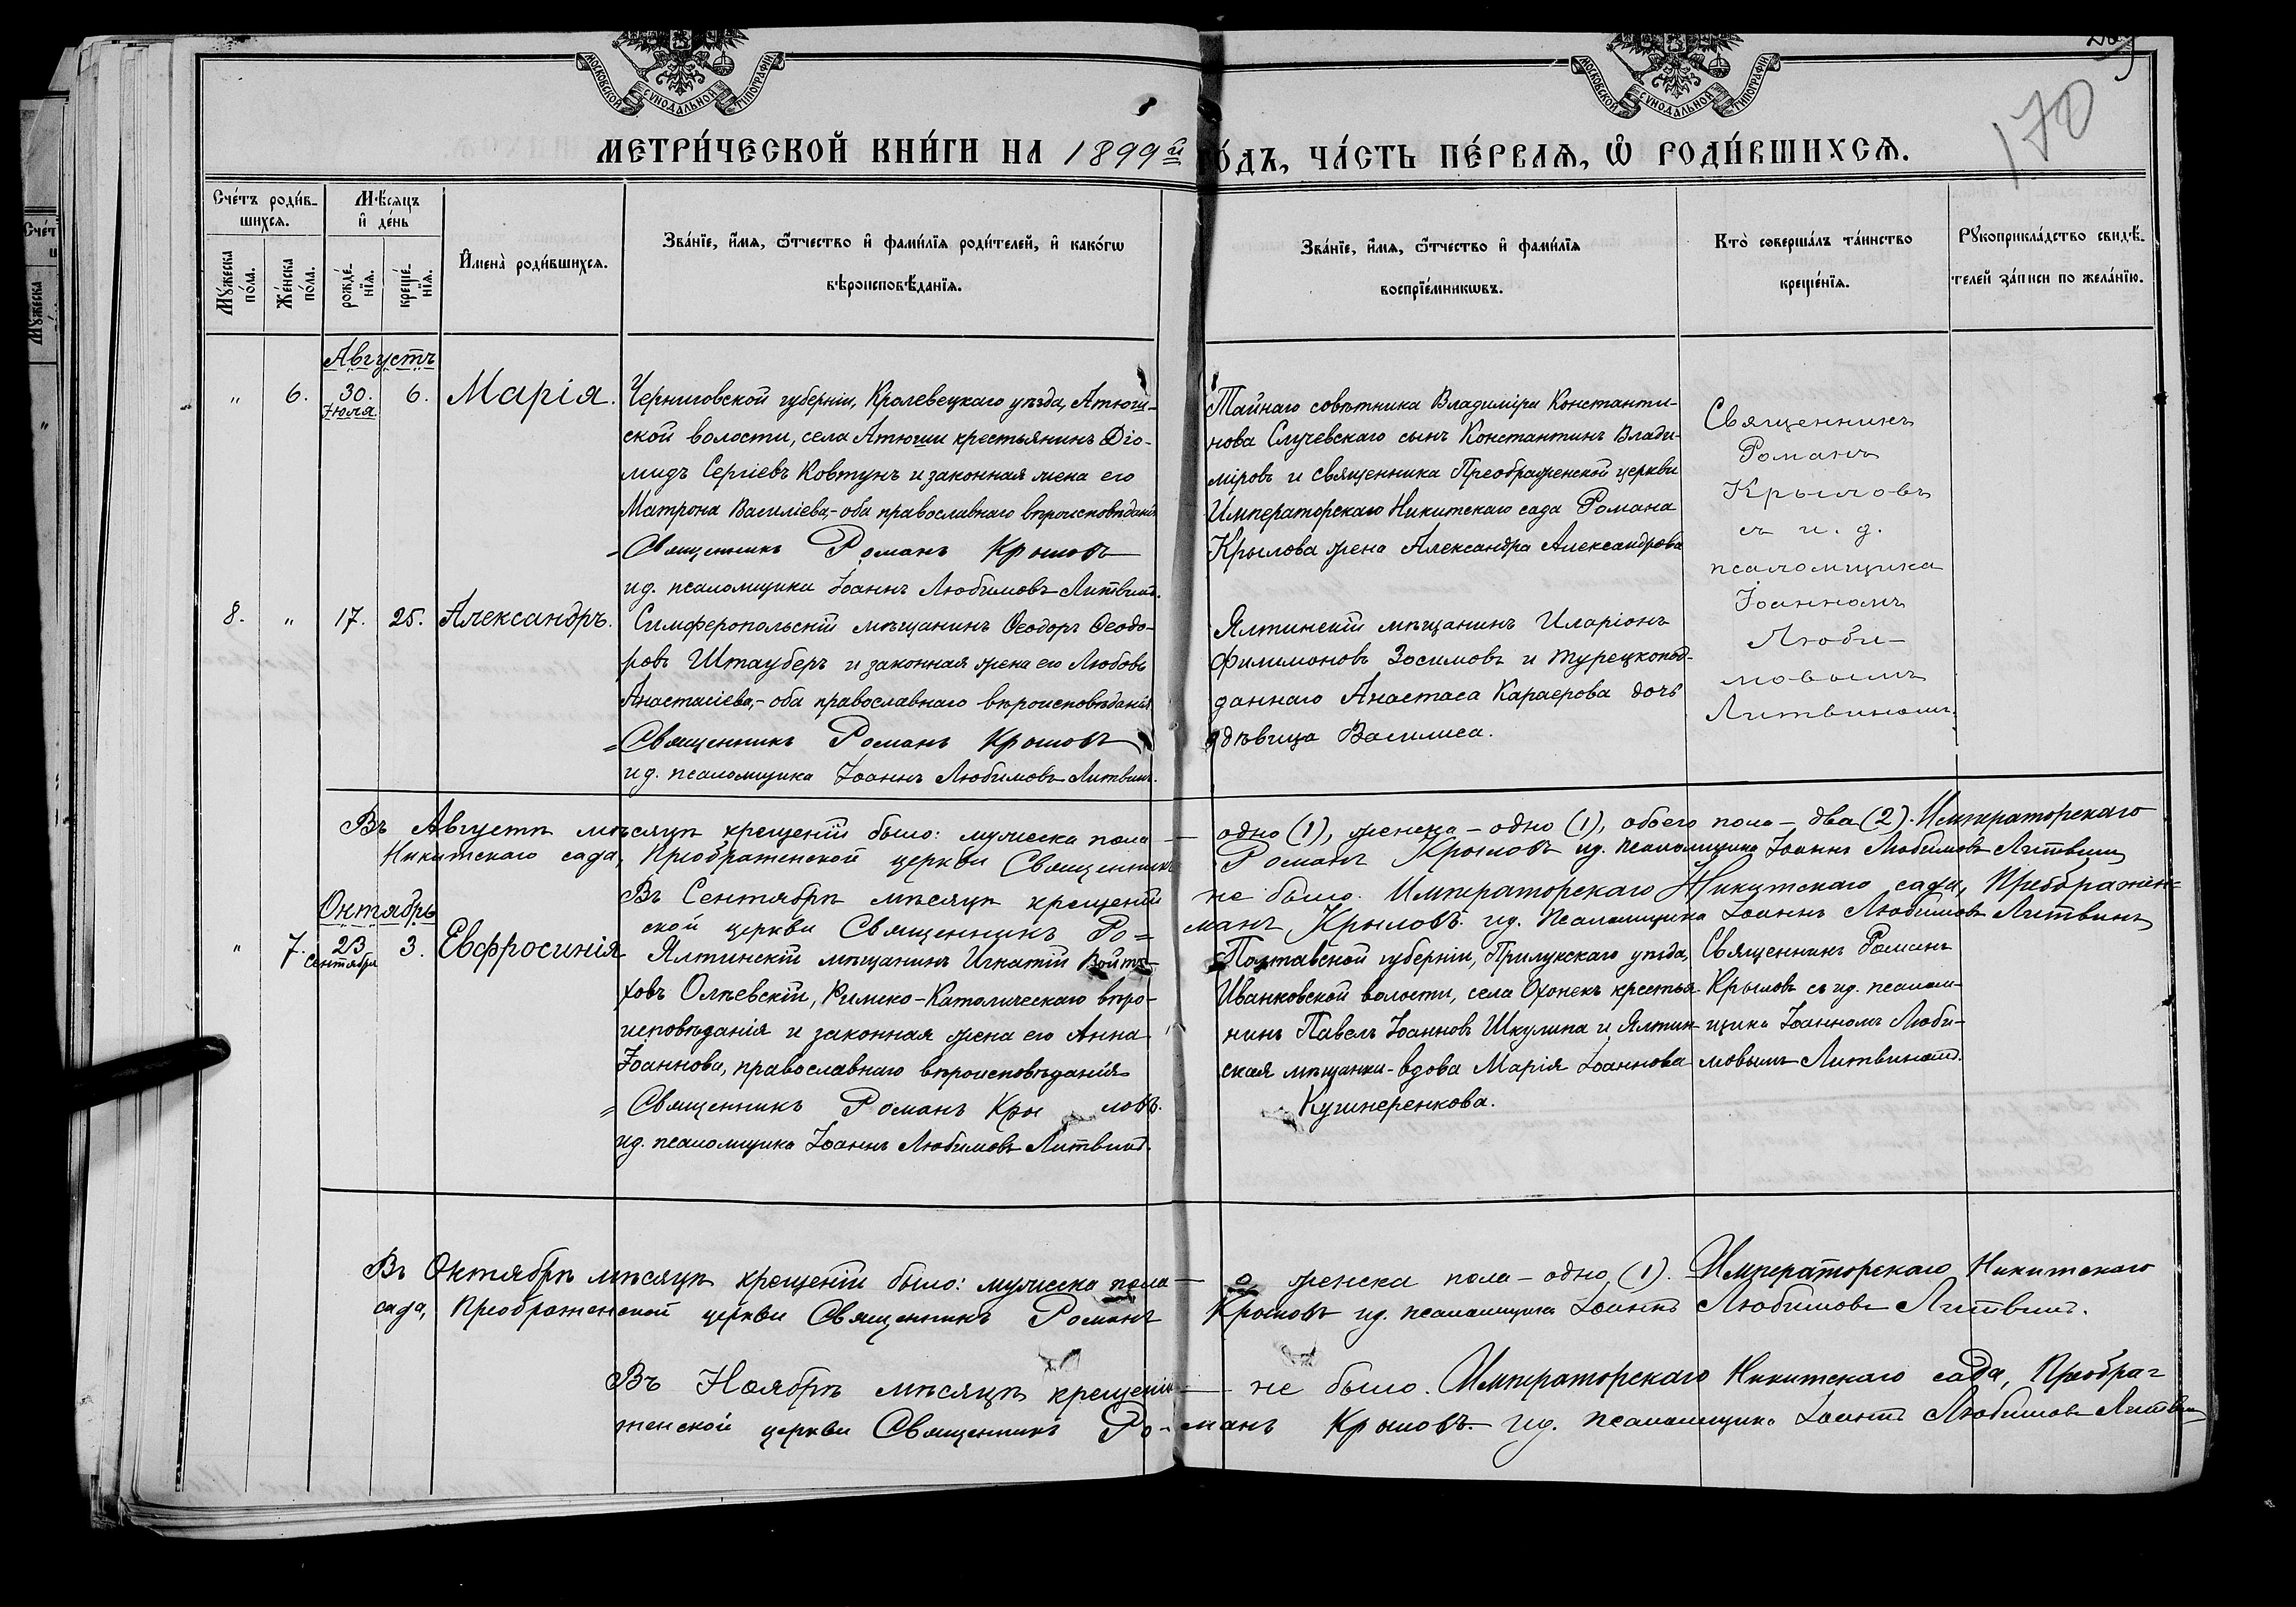 МОСКОВСКОЙ СУНОДАЛЬНОЙ ТИПОГРАФІИ
МОСКОВСКОЙ СУНОДАЛЬНОЙ ТИПОГРАФІИ
170
МЕТРИ́ЧЕСКОЙ КНИ́ГИ НА 1899й
О́ДЪ, ЧА́СТЬ ПЕ́РВАѦ, Ѡ҆ РОДИ́ВШИХСѦ.
Сче́тъ роди́в-
шихсѧ.
Мѣ́сяцъ
и҆ де́нь
И҆мена̀ роди́вшихсѧ.
Зва́нїе, и҆́мѧ, ѻ҆́тчество и҆ фами́лїѧ роди́телей, и҆ како́гѡ
вѣроисповѣ́данїѧ.
Мꙋ́жеска
по́ла.
Же́нска
по́ла.
рожде́-
нїѧ.
креще́-
нїѧ.
Зва́нїе, и҆́мѧ, ѻ҆́тчество и҆ фами́лїѧ
воспрїе́мникѡвъ.
Кто̀ соверша́лъ та́инство
креще́нїѧ.
Рꙋкоприкла́дство свидѣ́-
телей за́писи по жела́нїю.
Августъ
" 6. 30. Іюля 6. Марія.
Черниговской губерніи, Кролевецкаго уѣзда, Атюш-
ской волости, села Атюши крестьянинъ Діо-
мидъ Сергіевъ Ковтунъ и законная жена его
Матрона Василіева,- оба православнаго вѣроисповѣданія
Священникъ Романъ Крыловъ
и д. псаломщика Іоаннъ Любимовъ-Литвинъ.
Тайнаго совѣтника Владиміра Константи-
нова Случевскаго сынъ Константинъ Влади-
міровъ и священника Преображенской церкви
Императорскаго Никитскаго сада Романа
Крылова жена Александра Александрова
Священникъ
Романъ
Крыловъ
съ и. д.
псаломщика
Іоанномъ
Люби-
мовымъ
Литвиномъ.
8. " 17. 25. Александръ.
Симферопольскій мѣщанинъ Ѳеодоръ Ѳеодо-
ровъ Штауберъ и законная жена его Любовь
Анастасіева,- оба православнаго вѣроисповѣданія
Священникъ Романъ Крыловъ
и д. псаломщика Іоаннъ Любимовъ-Литвинъ.
Ялтинскій мѣщанинъ Иларіонъ
Филимоновъ Зосимовъ и турецкопод-
даннаго Анастаса Караерова дочь
дѣвица Василиса.
Въ Августѣ мѣсяцѣ крещеній было: мужеска пола — одно (1), женска - одно (1), обоего пола - два (2). Императорскаго
Никитскаго сада, Преображенской церкви Священникъ Романъ Крыловъ и д. псаломщика Іоаннъ Любимовъ-Литвинъ
Въ Сентябрѣ мѣсяцѣ крещеній не было. Императорскаго Никитскаго сада, Преображен-
ской церкви Священникъ Романъ Крыловъ. и д. псаломщика Іоаннъ Любимовъ-Литвинъ
Октябрь
" 7. 23 Сентября 3. Евфросинія
Ялтинскій мѣщанинъ Игнатій Войтѣ-
ховъ Олѣевскій, Римско-Католическаго вѣро-
исповѣданія и законная жена его Анна
Іоаннова, православнаго вѣроисповѣданія
Священникъ Романъ Крыловъ.
и д. псаломщика Іоаннъ Любимовъ-Литвинъ.
Полтавской губерніи, Прилукскаго уѣзда,
Иванковской волости, села Охонекъ крестья-
нинъ Павелъ Іоанновъ Шкулипа и Ялтин-
ская мѣщанка-вдова Марія Іоаннова
Кушнеренкова.
Священникъ Романъ
Крыловъ съ и д. псалом-
щика Іоанномъ Люби-
мовымъ Литвиномъ.
Въ Октябрѣ мѣсяцѣ крещеній было: мужеска пола — 0 женска пола - одно (1). Императорскаго Никитскаго
сада, Преображенской церкви Священникъ Романъ Крыловъ и д. псаломщика Іоаннъ Любимовъ-Литвинъ.
Въ Ноябрѣ мѣсяцѣ крещеній — не было. Императорскаго Никитскаго сада, Преобра-
женской церкви Священникъ Романъ Крыловъ. и д. псаломщика Іоаннъ Любимовъ-Литвинъ